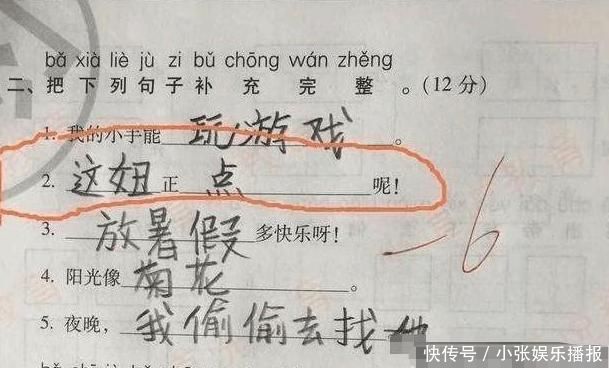 bǎ xià liè jù zi bǔ chōng wán zhěng
二、把下列句子补充完整。(12分)
1. 我的小手能玩游戏。
2. 这妞正点呢!
3. 放暑假多快乐呀!
4. 阳光像菊花。
5. 夜晚,我偷偷去找她
-6
快传号/小张娱乐播报